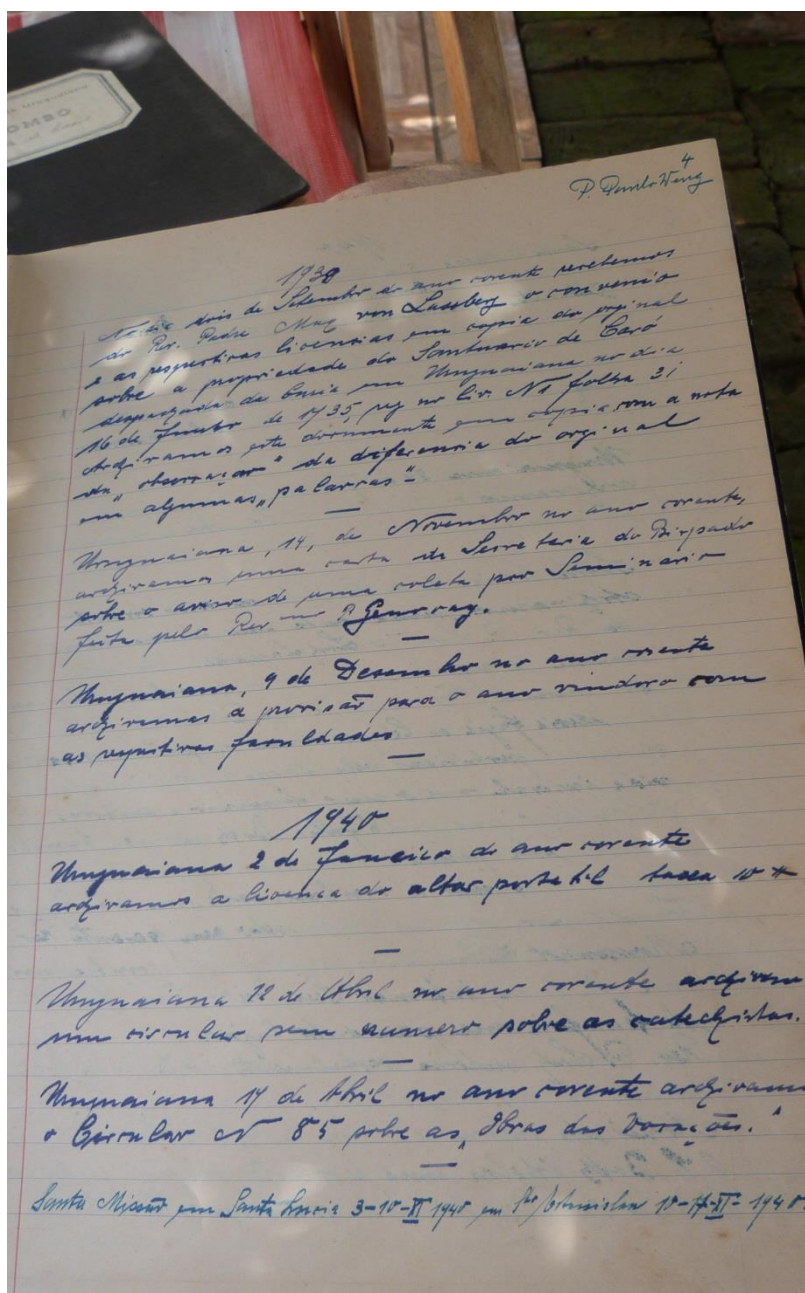 4
P. Paulo Weng
1939
No dia dois de Setembro do ano corente recebemos
do Rev. Padre Max von Lassberg o convenio
e as respectivas licencias em copia do orginal
sobre a propriedade do Santuario de Caró
despachada da Curia em Uruguaiana no dia
16 de de 1935, reg no liv. N 1 folha 31
Archivamos este documento em copia com a nota
da „observaçao" da diferencia do orginal
em algumas „palavras"
Uruguaiana, 14, de Novembro no ano corente,
archivamos uma carta da Secretaria do Bispado
sobre o aviso de uma coleta por Seminario
feita pelo Rev mo P.
Uruguaiana, 9 de Desembro no ano corente
archivamos a provisão para o ano vindoro com
as respetivas faculdades
1940
Uruguaiana 2 de Janeiro do ano corente
archivamos a licenca do altar portatil taxa 10
Uruguaiana 12 de Abril no ano corente archivamo
um circular sem numero sobre as catechistas.
Uruguaiana 17 de Abril no ano corente archivamo
o Circular N 85 sobre as „Obras das Vocações."
Santa Missão em Santa Lucia 3-10-XI 1940 em 10-17-XI-1940